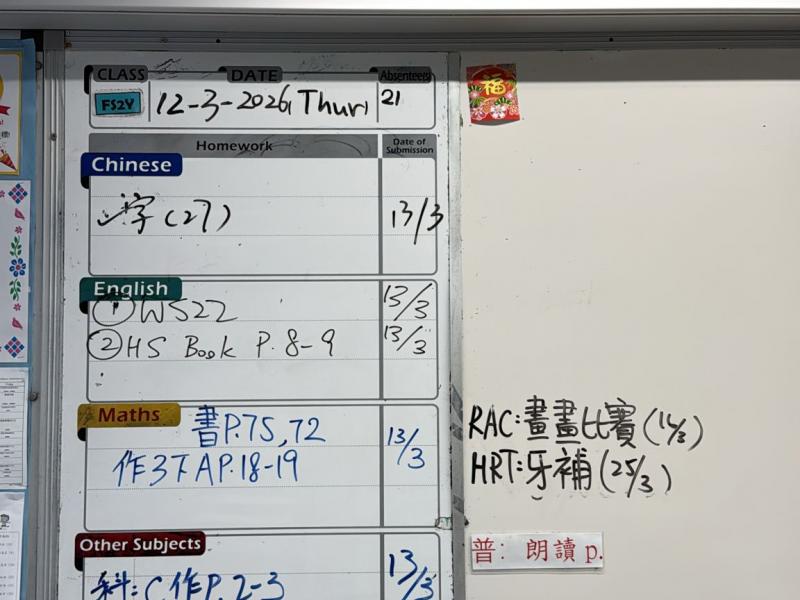 CLASS DATE Absentees
FS2Y 12-3-2026, Thur, 21
Homework Date of Submission
Chinese
字(27) 13/3
English
①WS22 13/3
②HS Book P.8-9 13/3
Maths
書P.75,72
作3下AP.18-19 13/3
Other Subjects
科:C作P.2-3 13/3
福
RAC:畫畫比賽
HRT:牙補(25/3)
普: 朗讀 p.